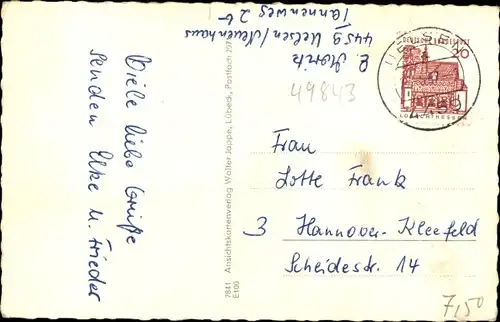 Viele liebe Grüße
senden Elke u. Frieder
7841 Ansichtskartenverlag Walter Jappe, Lübeck, Postfach 297
E109
E. Moritz
4459 Uelsen/Neuenhaus
Tannenweg 2
49843
UELSEN
4459
20
LORSCH/HESSEN
Frau
Lotte Frank
3 Hannover-Kleefeld
Scheidestr. 14
7,50